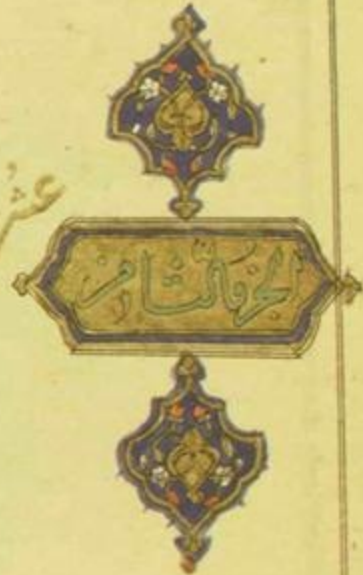 عشر
الجزؤ الثامن